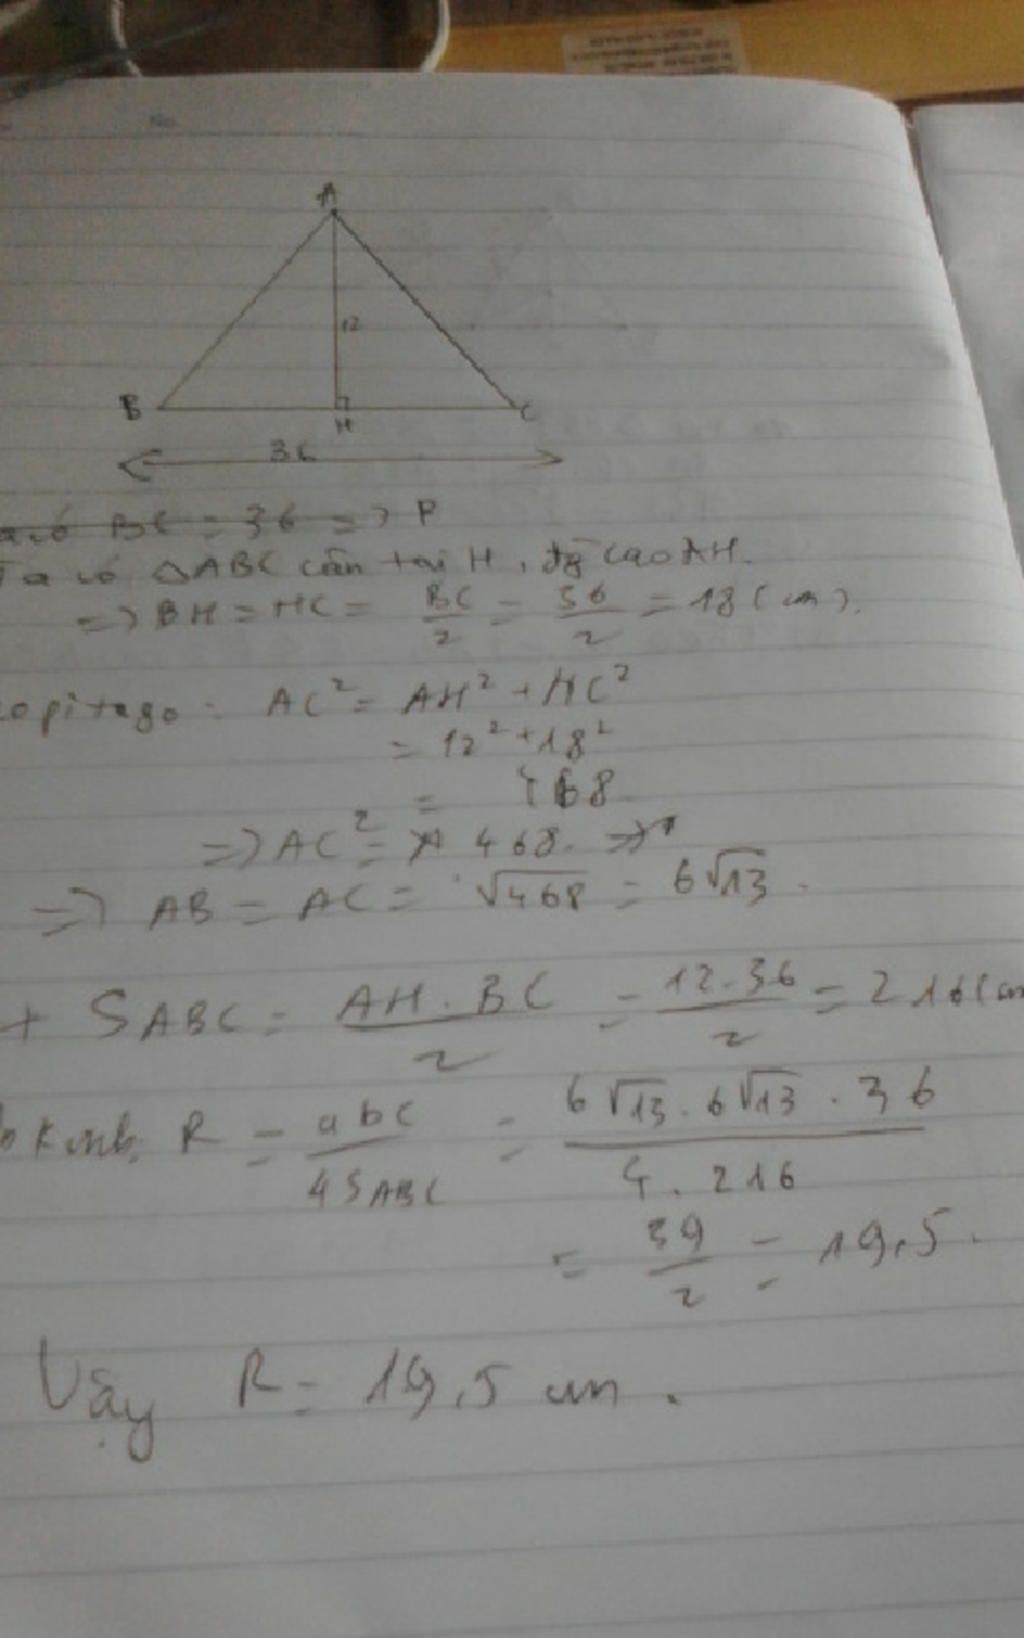 A
12
B
H
C
36
có BC = 36 => P
Ta có △ABC cân tại H, đg cao AH.
=> BH = HC = BC/2 = 36/2 = 18 (cm).
pitago: AC² = AH² + HC²
= 12² + 18²
= 468
=> AC² = 468 =>
=> AB = AC = √468 = 6√13.
+ SABC = AH.BC/2 = 12.36/2 = 216 (cm
R = abc/4SABC = 6√13.6√13.36/4.216
= 39/2 = 19,5.
Vậy R = 19,5 cm.